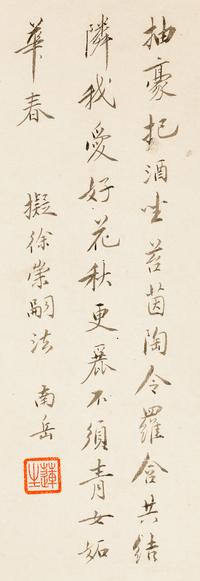 抽豪把酒坐苔茵陶令羅含共結
隣我愛好花秋更麗不須青女妬
華春
擬徐崇嗣法　南岳